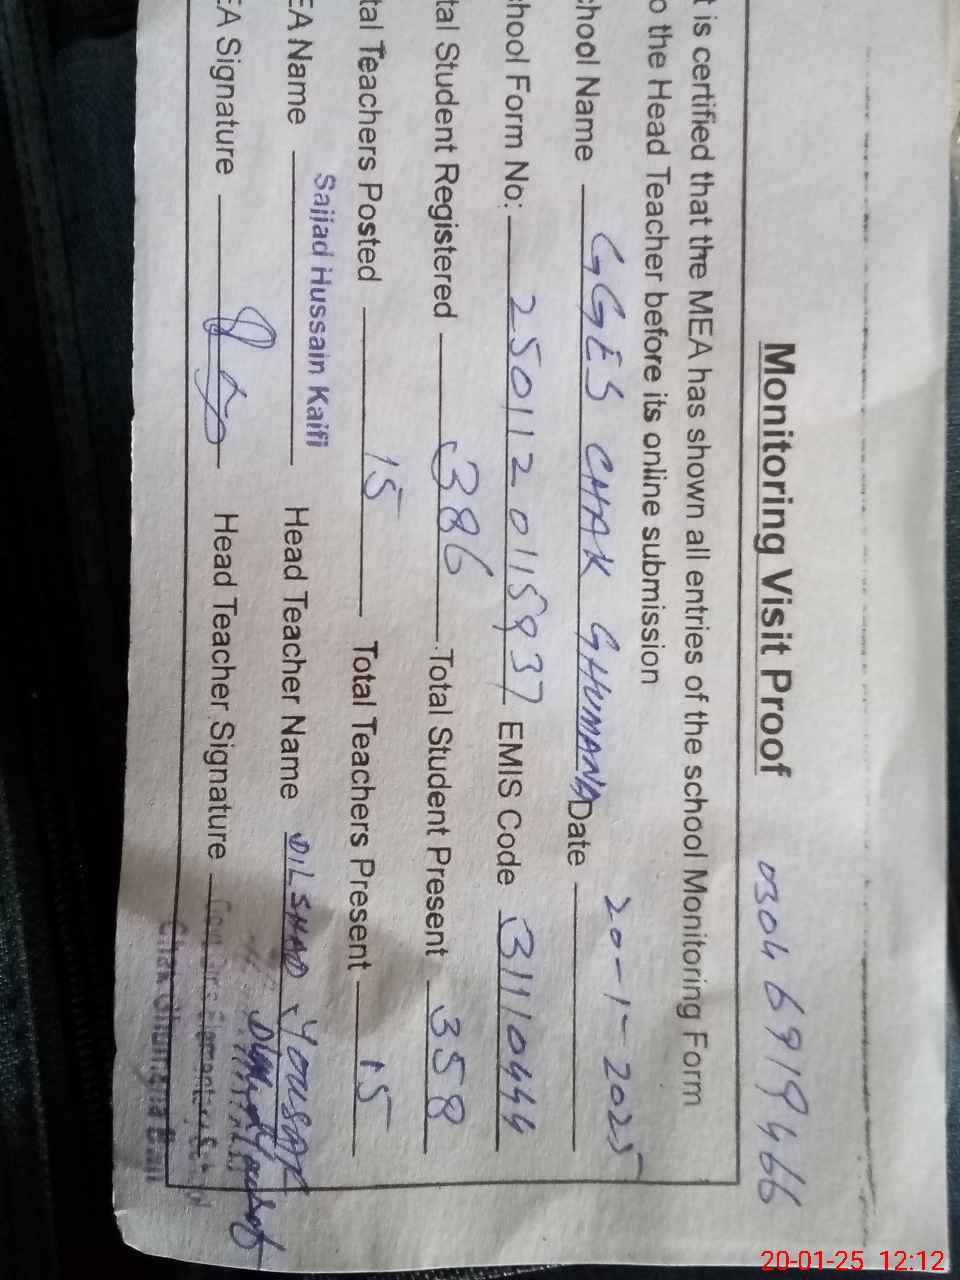 Monitoring Visit Proof 0304 6919466
t is certified that the MEA has shown all entries of the school Monitoring Form
o the Head Teacher before its online submission
chool Name GGES CHAK GHUMANA Date 20-1-2025
chool Form No: 2501120115937 EMIS Code 31110444
tal Student Registered 386 Total Student Present 358
tal Teachers Posted 15 Total Teachers Present 15
EA Name Sajjad Hussain Kaifi Head Teacher Name DILSHAD YOUSAF
EA Signature Head Teacher Signature Dilshad Yousaf
Elementary School
Chak Ghumana
20-01-25 12:12